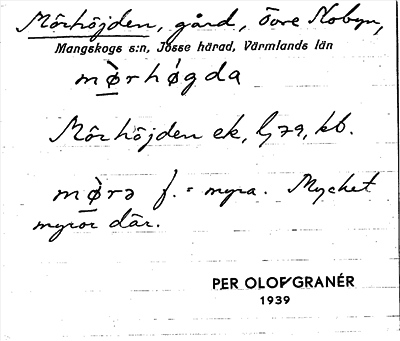 Mörhöjden, gård, övre Nobyn,
Mangskogs s:n, Jösse härad, Värmlands län
mø̀rhǿgda
Mörhöjden ek, lj 79, kb.
mø̀rə f. = myra. Mycket
myror där.
PER OLOF GRANÉR
1939